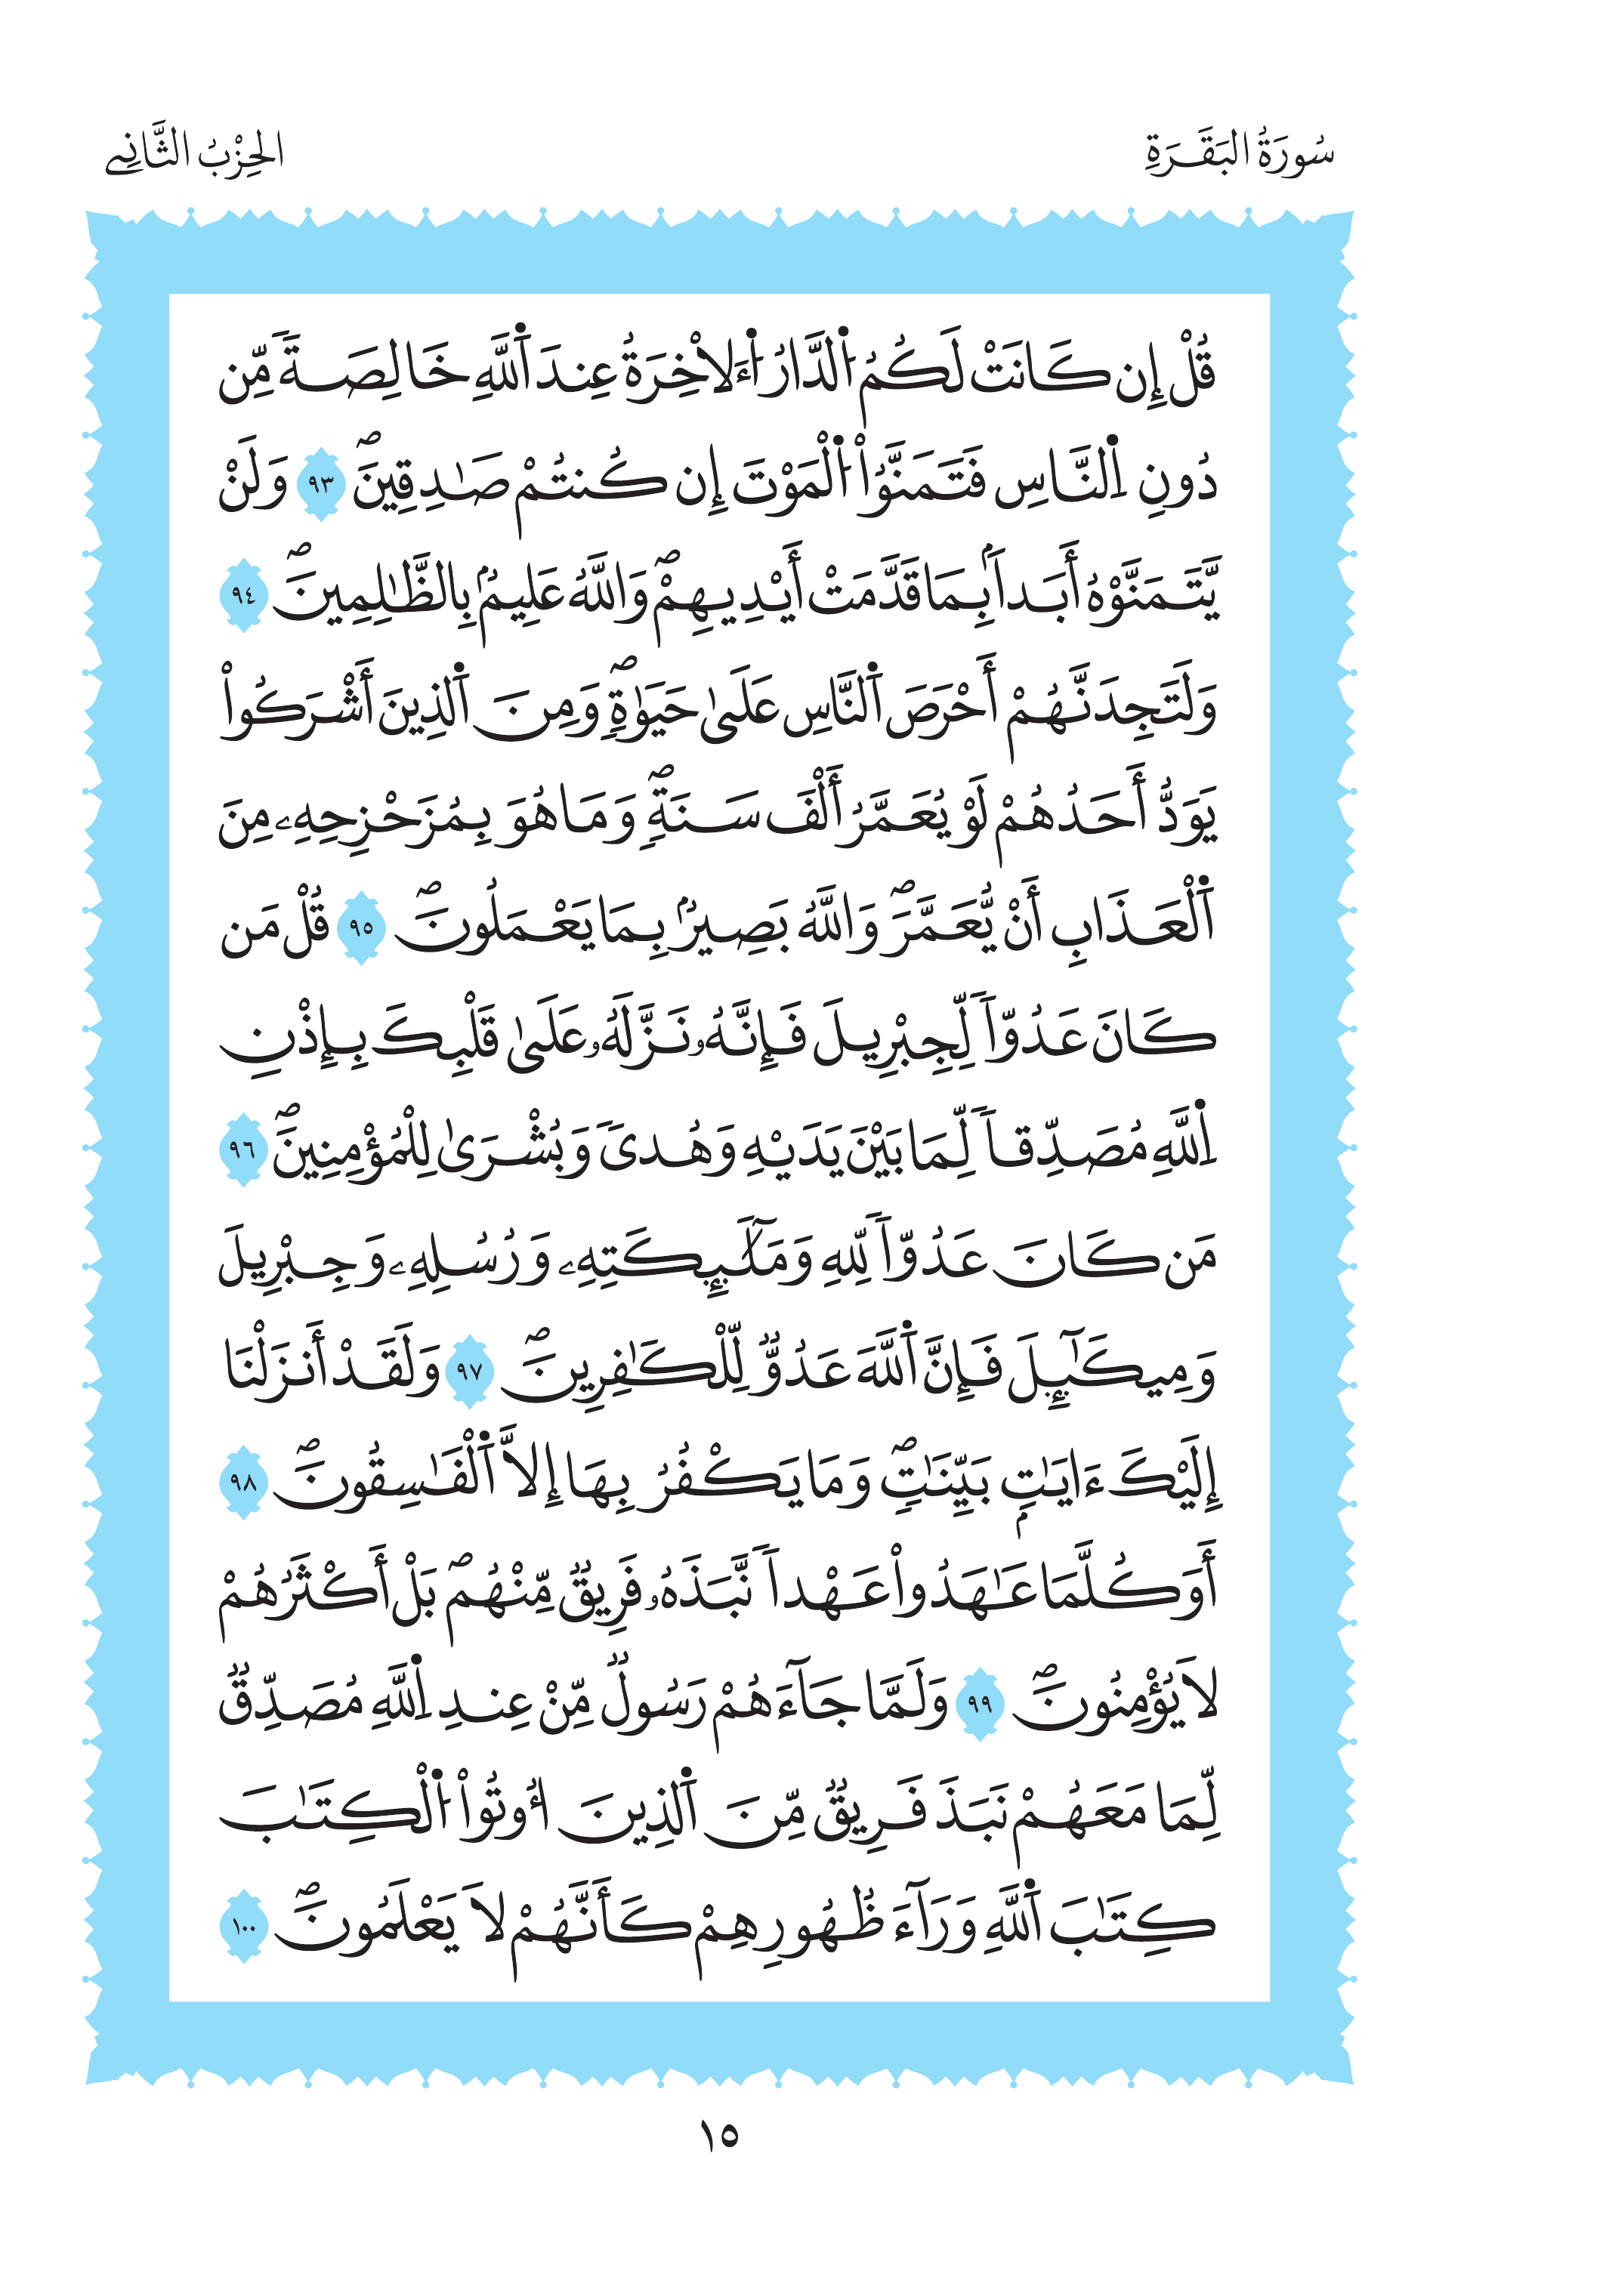 سُورَةُ البَقَرَةِ
الحِزْبُ الثَّانِي
قُلْ إِن كَانَتْ لَكُمُ اُ۬لدَّارُ اُ۬لَاخِرَةُ عِندَ اَ۬للَّهِ خَالِصَةٗ مِّن
دُونِ اِ۬لنَّاسِ فَتَمَنَّوُاْ اُ۬لْمَوْتَ إِن كُنتُمْ صَٰدِقِينَۖ ٩٣ وَلَنْ
يَّتَمَنَّوْهُ أَبَداَۢ بِمَا قَدَّمَتْ أَيْدِيهِمْۖ وَاللَّهُ عَلِيمُۢ بِالظَّٰلِمِينَۖ ٩٤
وَلَتَجِدَنَّهُمْ أَحْرَصَ اَ۬لنَّاسِ عَلَىٰ حَيَوٰةٖ وَمِنَ اَ۬لذِينَ أَشْرَكُواْ
يَوَدُّ أَحَدُهُمْ لَوْ يُعَمَّرُ أَلْفَ سَنَةٖۖ وَمَا هُوَ بِمُزَحْزِحِهِۦ مِنَ
اَ۬لْعَذَابِ أَنْ يُّعَمَّرَۖ وَاللَّهُ بَصِيرُۢ بِمَا يَعْمَلُونَۖ ٩٥ قُلْ مَن
كَانَ عَدُوّاٗ لِّجِبْرِيلَ فَإِنَّهُۥ نَزَّلَهُۥ عَلَىٰ قَلْبِكَ بِإِذْنِ
اِ۬للَّهِ مُصَدِّقاٗ لِّمَا بَيْنَ يَدَيْهِ وَهُدىٗ وَبُشْرَىٰ لِلْمُؤْمِنِينَۖ ٩٦
مَن كَانَ عَدُوّاٗ لِّلهِ وَمَلَٰٓئِكَتِهِۦ وَرُسُلِهِۦ وَجِبْرِيلَ
وَمِيكَٰٓئِلَ فَإِنَّ اَ۬للَّهَ عَدُوّٞ لِّلْكَٰفِرِينَۖ ٩٧ وَلَقَدْ أَنزَلْنَا
إِلَيْكَ ءَايَٰتِۢ بَيِّنَٰتٖۖ وَمَا يَكْفُرُ بِهَا إِلاَّ اَ۬لْفَٰسِقُونَۖ ٩٨
أَوَكُلَّمَا عَٰهَدُواْ عَهْداٗ نَّبَذَهُۥ فَرِيقٞ مِّنْهُمۖ بَلْ أَكْثَرُهُمْ
لاَ يُؤْمِنُونَۖ ٩٩ وَلَمَّا جَآءَهُمْ رَسُولٞ مِّنْ عِندِ اِ۬للَّهِ مُصَدِّقٞ
لِّمَا مَعَهُمْ نَبَذَ فَرِيقٞ مِّنَ اَ۬لذِينَ أُوتُواْ اُ۬لْكِتَٰبَ
كِتَٰبَ اَ۬للَّهِ وَرَآءَ ظُهُورِهِمْ كَأَنَّهُمْ لاَ يَعْلَمُونَۖ ١٠٠
١٥